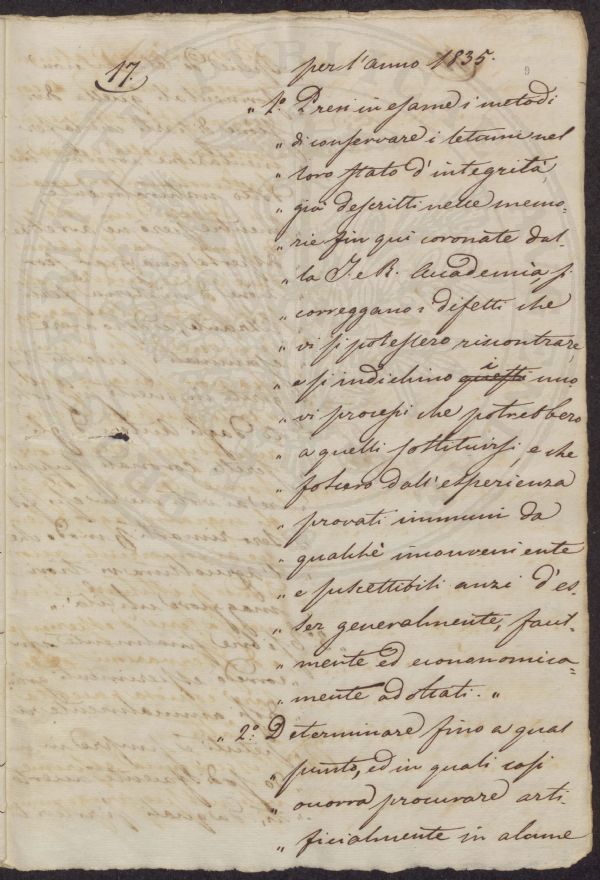 17.
per l'anno 1835.
9
" 1.° Presi in esame i metodi
" di conservare i letami nel
" loro stato d'integrità,
" già descritti nelle memo=
" rie fin qui coronate dal=
" la I. e R. Accademia, si
" correggano i difetti che
" vi si potessero riscontrare,
" e si indichino questi i nuo
" vi processi che potrebbero
" a quelli sostituirsi, e che
" fossero dall'esperienza
" provati immuni da
" qualche inconveniente
" e suscettibili anzi d'es=
" ser generalmente, facil=
" mente ed econanomica=
" mente adottati. "
" 2.° Determinare fino a qual
" punto, ed in quali casi
" occorra procurare arti=
" ficialmente in alcune